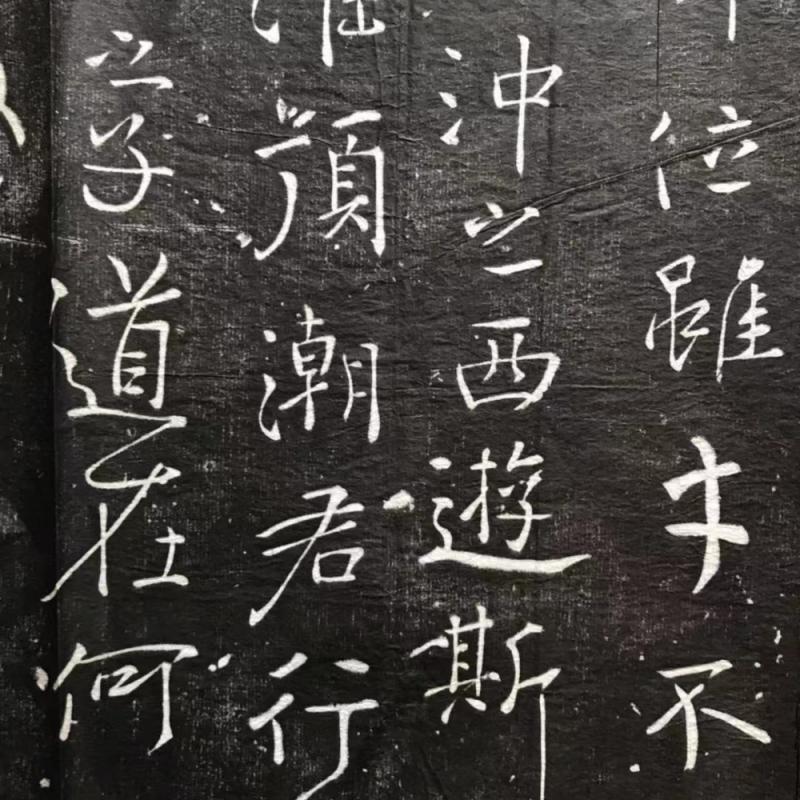 位雖才不
沖之西遊斯
顏潮君行
之子道在何